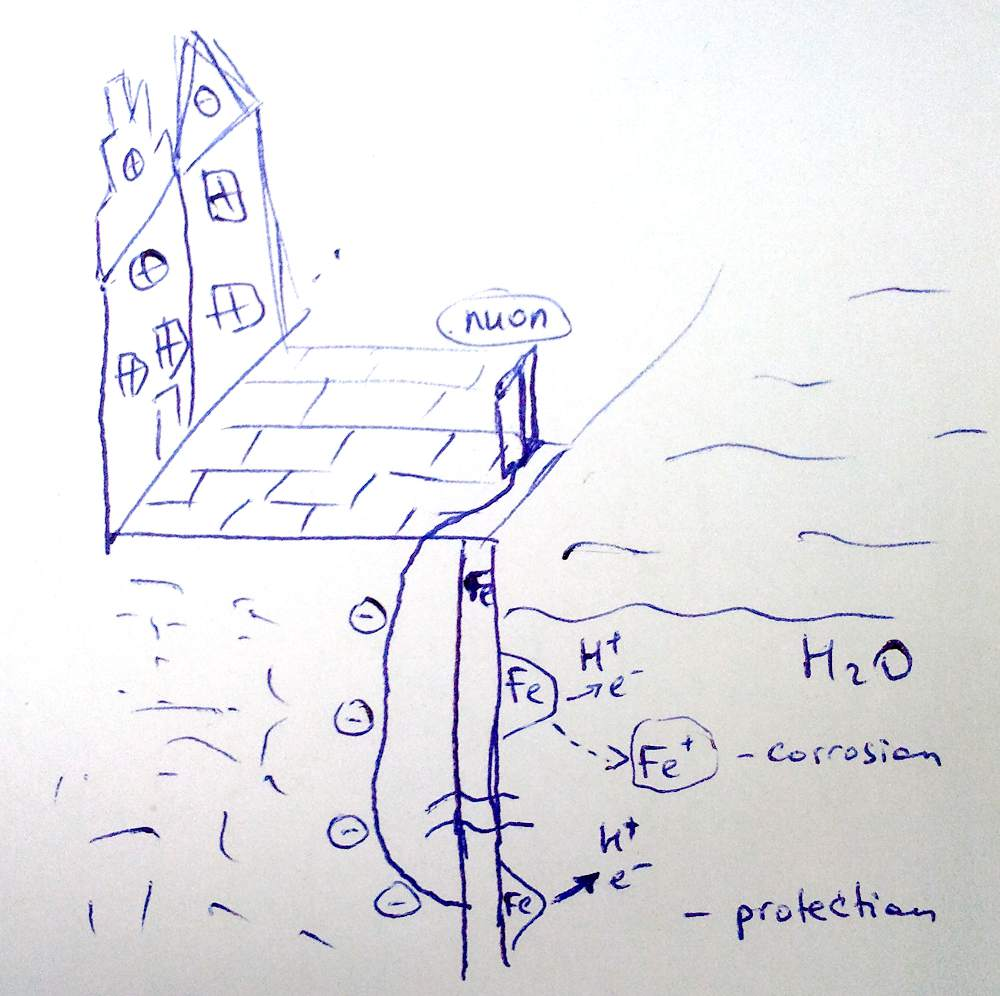 nuon
Fe
H₂O
Fe → H⁺
e⁻
Fe⁺ - corrosion
Fe → H⁺
e⁻
- protection